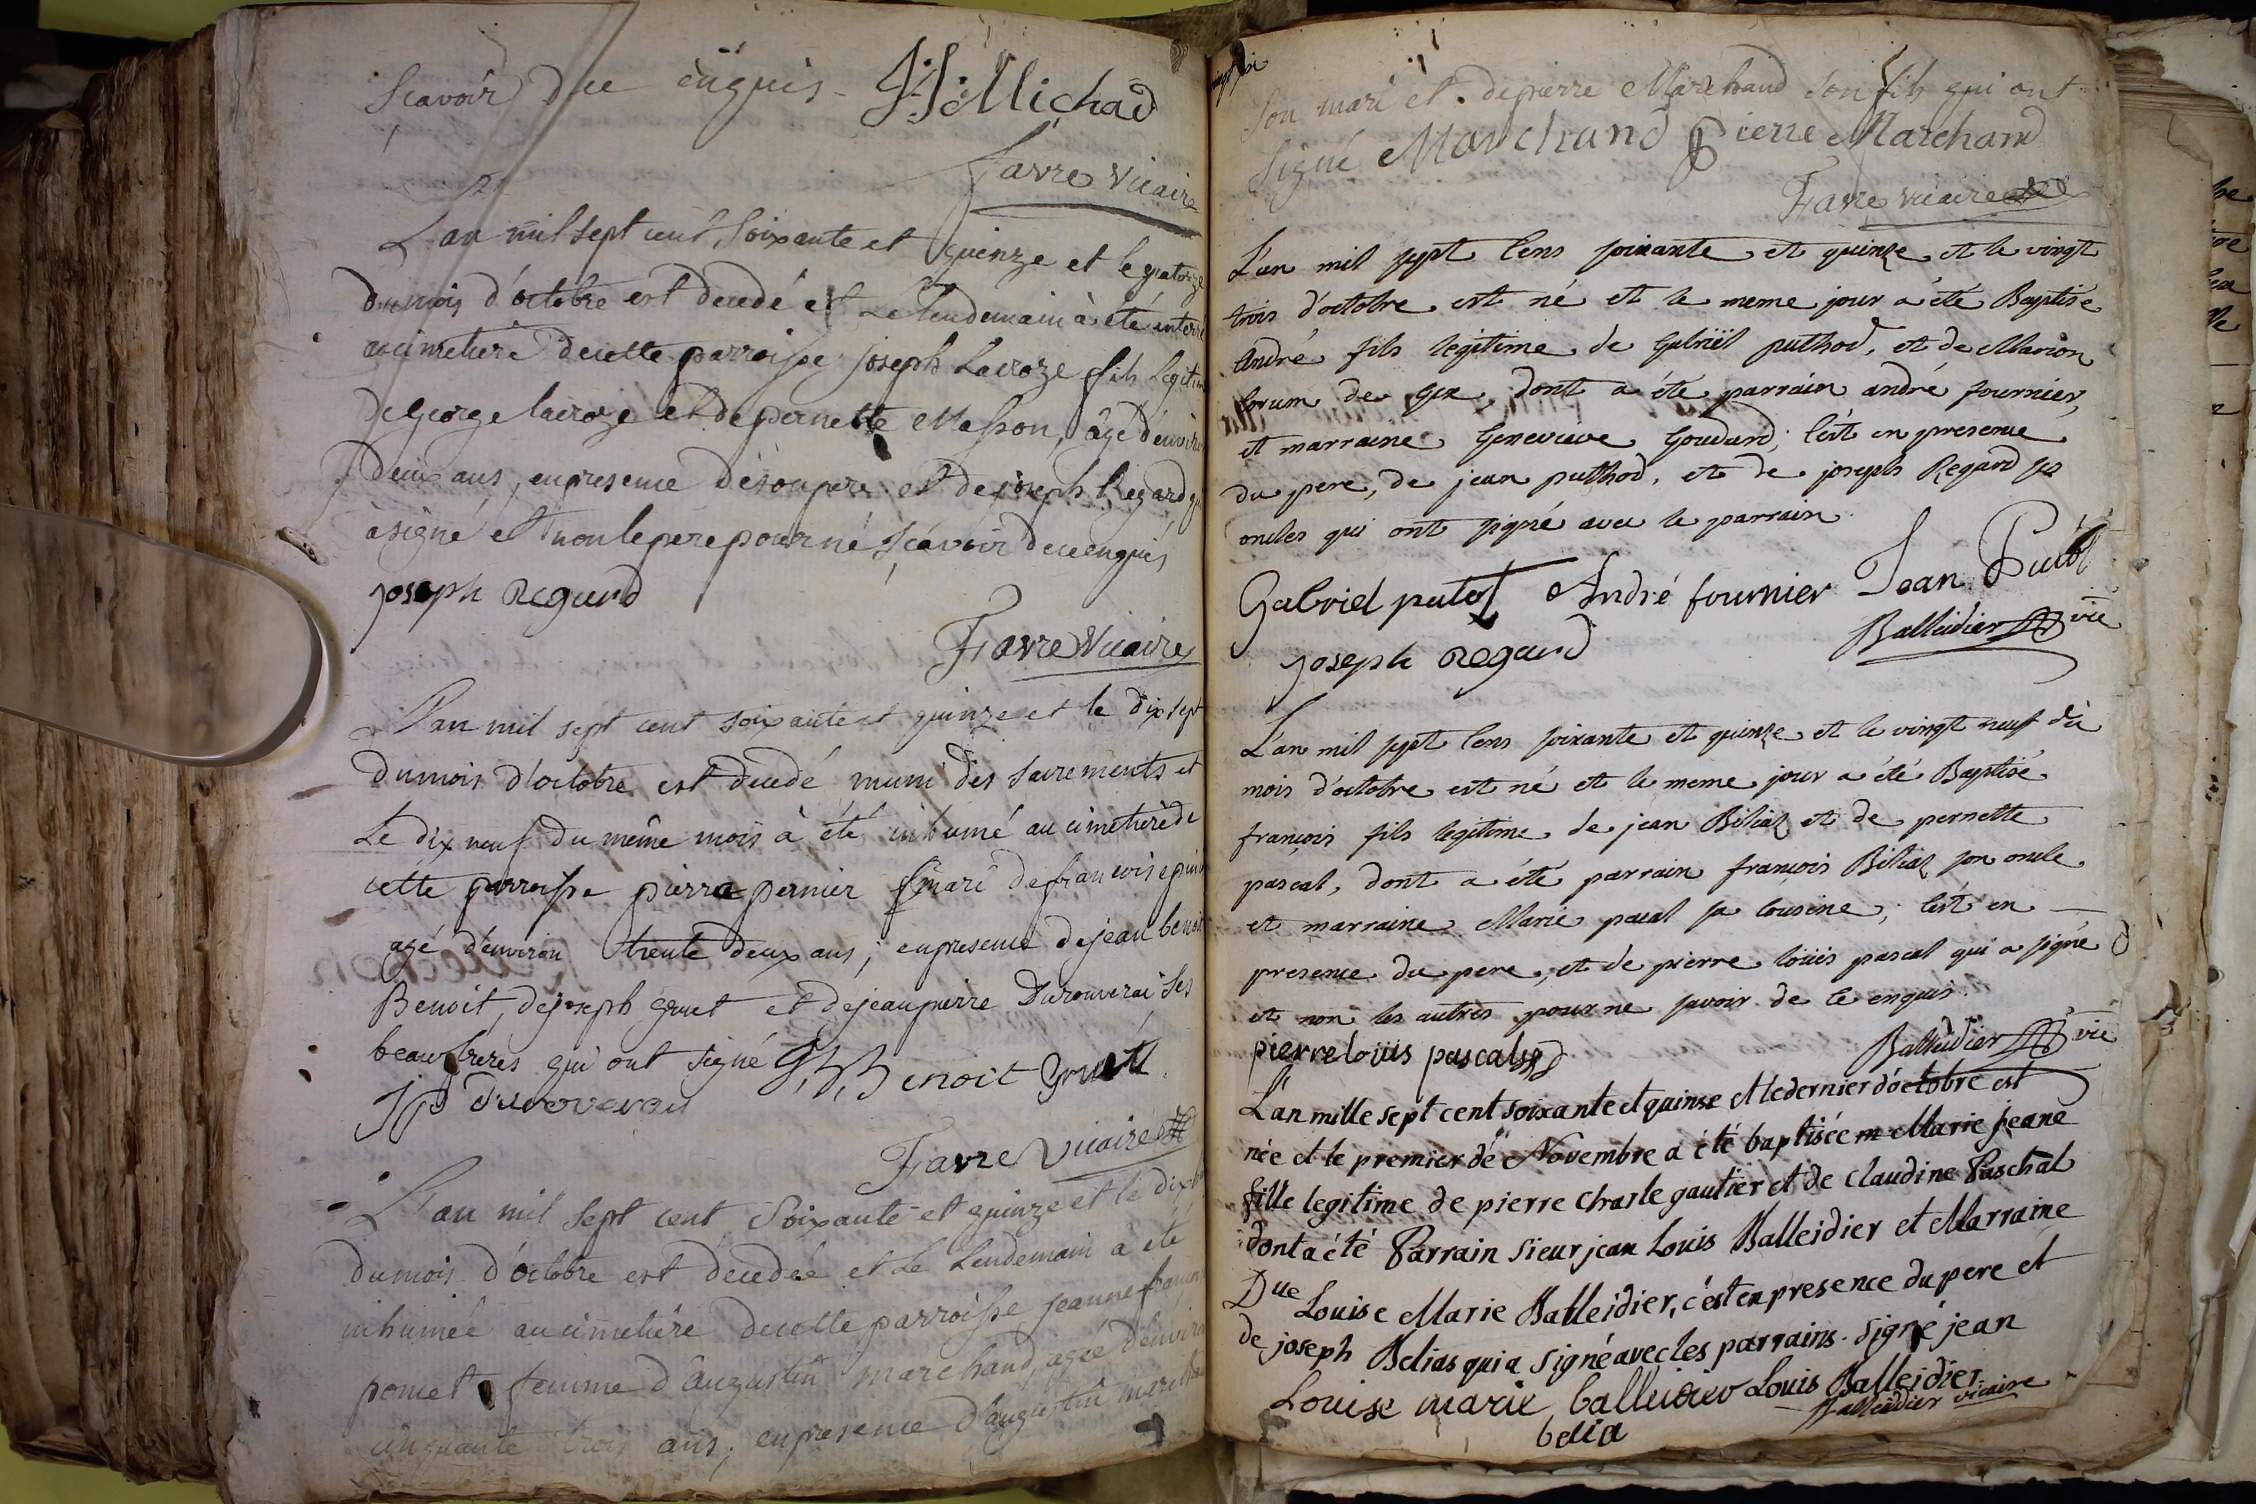 Scavoir de ce enquis - JJ Michaud
Favre vicaire
L'an mil sept cent soixante et quinze et le quatorze
du mois d'octobre est decedé et Le Lendemain à été enterré
au cimetiére de cette parroisse joseph Lacroze fils Legitime
de george lacroze et de pernette Masson, âgé d'environ
deux ans, en presence de son pere et de joseph Regard qui
à signé et non le pere pour né sçavoir de ce enquis
joseph Regard
Favre vicaire
L'an mil sept cent soixante et quinze et le dix sept
du mois d'octobre est decedé muni des sacrements et
Le dix neuf du même mois à été inhumé au cimetiére de
cette parroisse pierre pernier mari de francoise
agé d'environ trente deux ans; en presence de jean benoit
Benoit, de joseph gruet et de jean pierre Durouverai ses
beaufreres qui ont signé Benoit gruet
JP durovera
Favre vicaire
L'an mil sept cent Soixante et quinze et le dix
du mois d'octobre est decedée et Le Lendemain à été
inhumée au cimetiére de cette parroisse jeanne
poncet femme d'augustin marchand, agée d'environ
cinquante trois ans; en presence d'augustin marchand
vingt six
son mari et de pierre Marchand son fils qui ont
signé Marchand Pierre Marchand
Favre vicaire
L'an mil sept cens soixante et quinze et le vingt
trois d'octobre est né et le meme jour a été Baptisé
André fils legitime de gabriël puthod, et de Marion
forum de gex, dont a été parrain andré fournier,
et marraine Geneviéve goudard; c'est en presence
du pere, de jean puthod, et de joseph Regard ses
oncles qui ont signé avec le parrain
Gabriel putot André fournier Jean Putot
Balleidier vic
joseph Regard
L'an mil sept cens soixante et quinze et le vingt neuf du
mois d'octobre est né et le meme jour a été Baptisé
françois fils legitime de jean Béliaz et de pernette
pascal, dont a été parrain françois Béliaz son oncle
et marraine Marie pascal sa cousine; c'est en
presence du pere, et de pierre loüis pascal qui a signé
et non les autres pour ne savoir de ce enquis
pierre loüis pascal
Balleidier vic
L'an mille sept cent soixante et quinse et le dernier d'octobre est
née et le premier dé Novembre a été baptisée Marie jeane
fille legitime de pierre charle gautier et de claudine Paschal
dont a été Parrain sieur jean Louis Balleidier et Marraine
Dlle Louise Marie Balleidier, c'est en presence du pere et
de joseph Belias qui a signé avec les parrains. Signé jean
Louise marie balleidier Louis Balleidier
Balleidier vicaire
belia